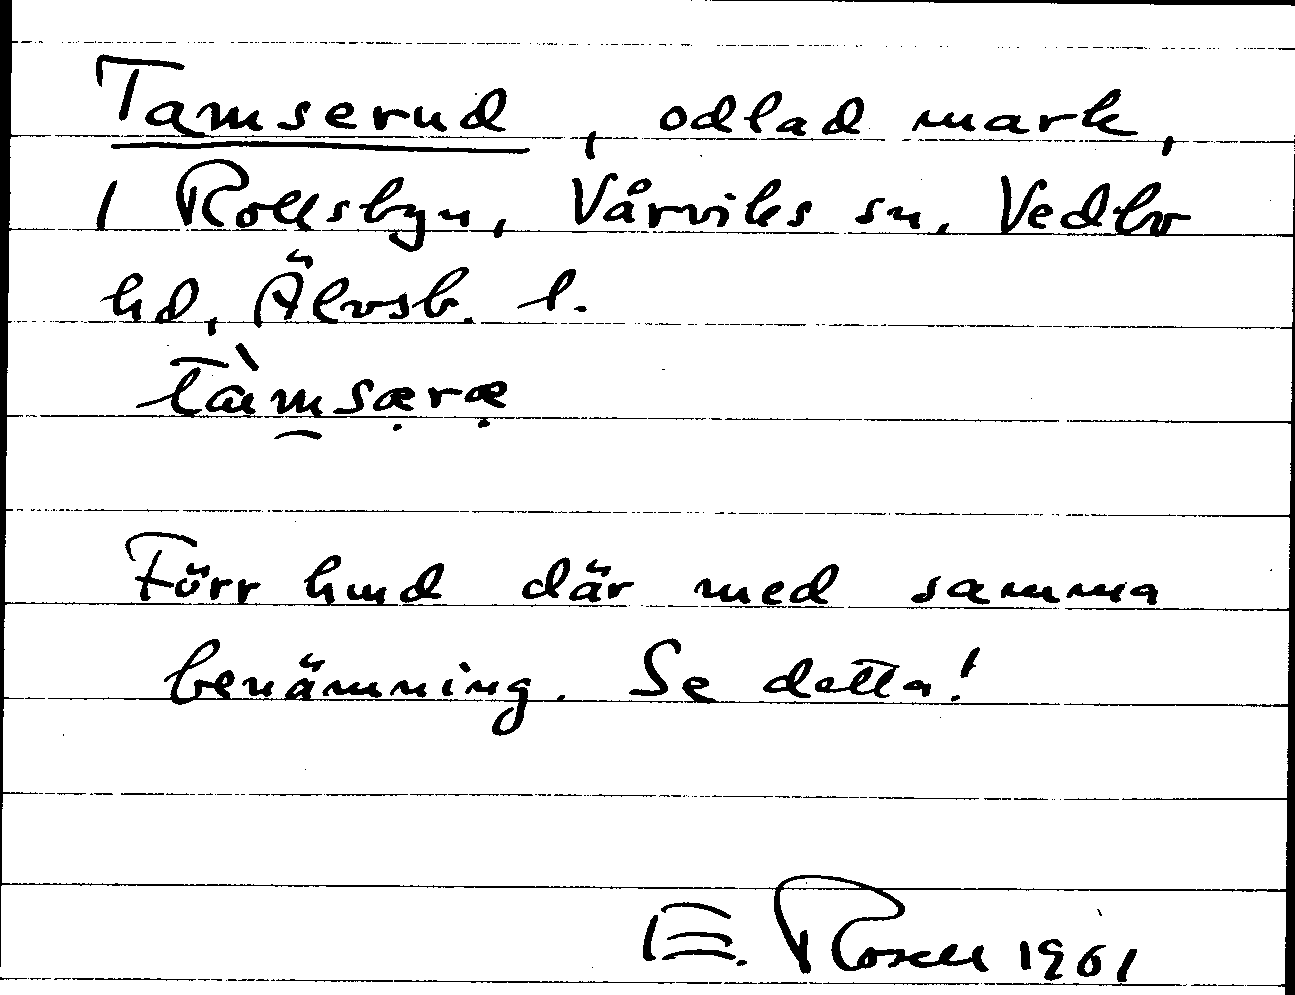 Tamserud, odlad mark,
i Rollsbyn, Vårviks sn, Vedbo
hd, Älvsb. l.
tàmsæræ
Förr hmd där med samma
benämning. Se detta!
E. Rosell 1961